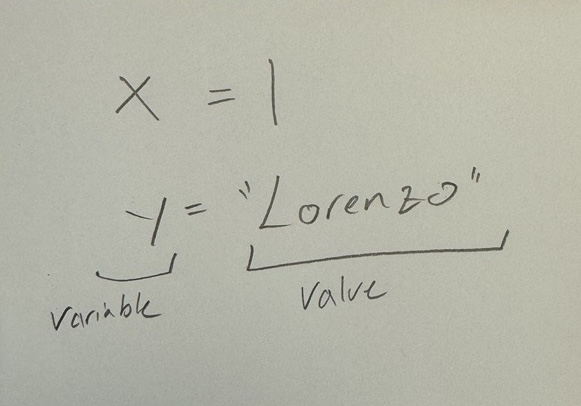 x = 1
y = "Lorenzo"
variable value